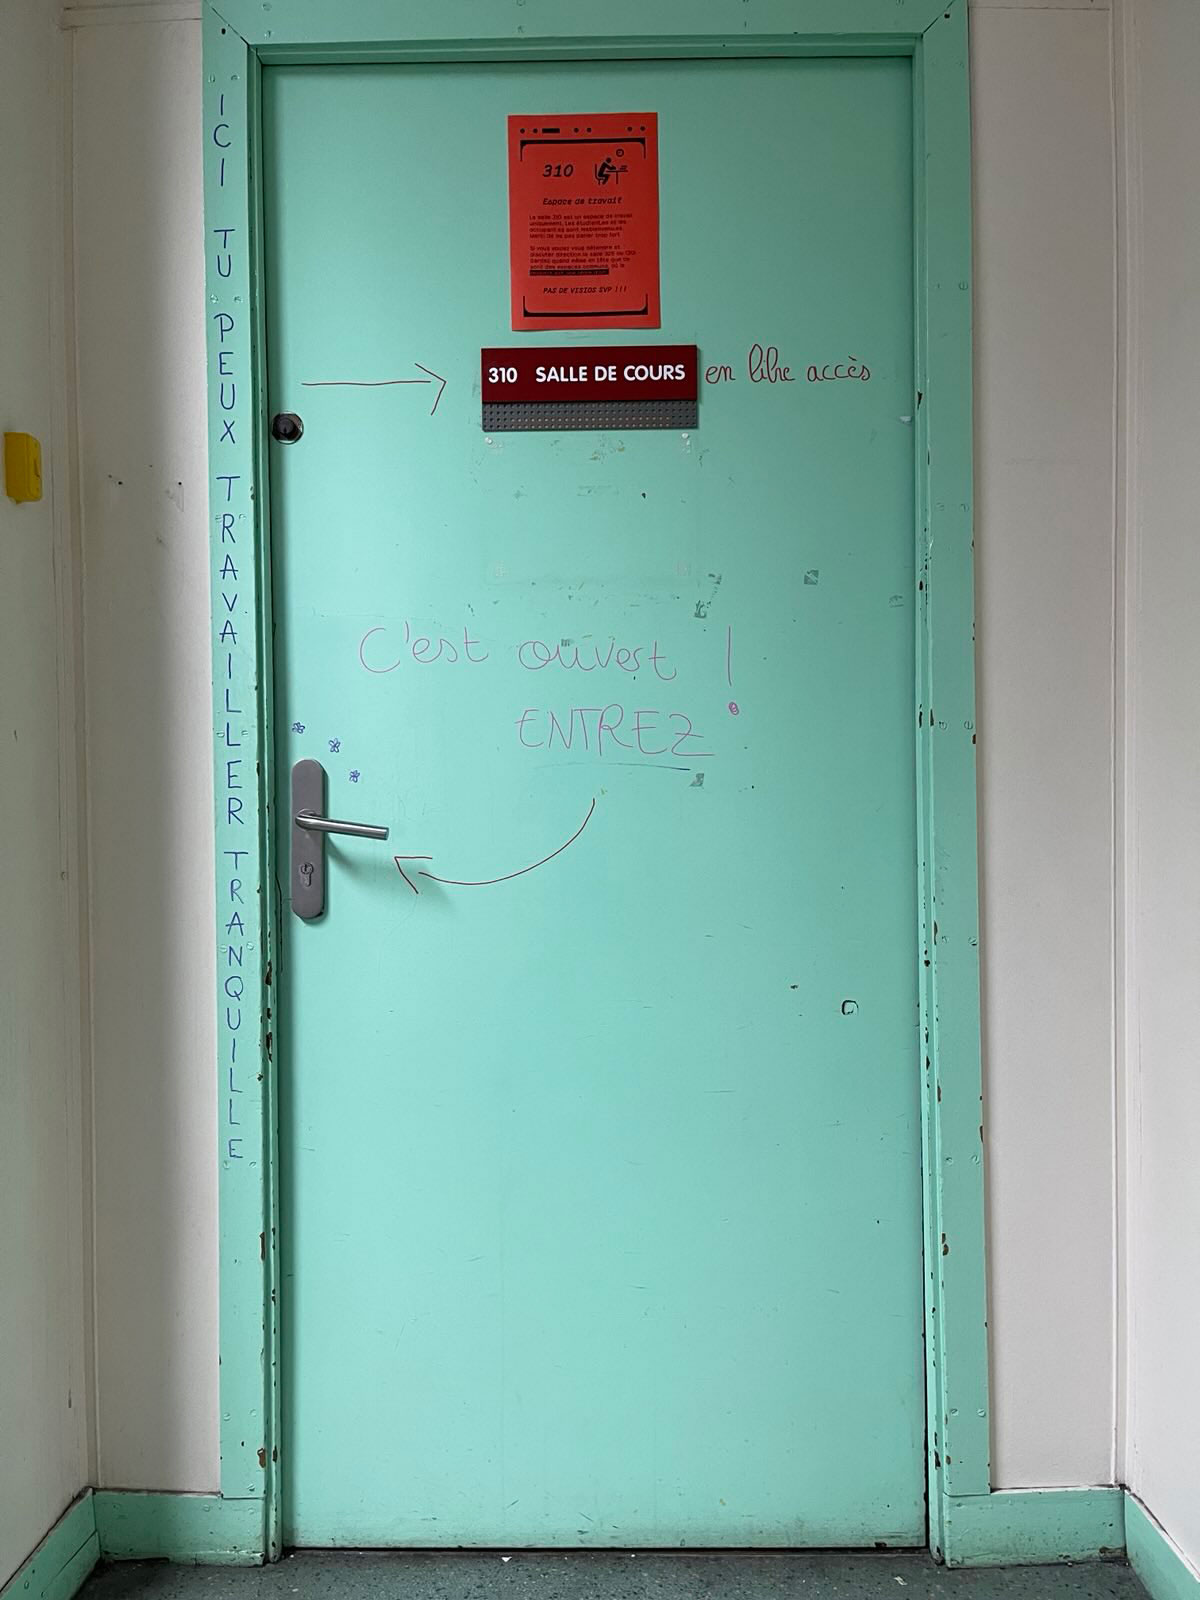 ICI TU PEUX TRAVAILLER TRANQUILLE
310
Espace de travail
La salle 310 est un espace de travail
uniquement. Les étudiant.es et les
occupant.es sont les bienvenu.es,
merci de ne pas parler trop fort.
Si vous voulez vous détendre et
discuter direction la salle
quand même en tête que ce
sont des espaces communs, où le
PAS DE VISIOS SVP !!!
310 SALLE DE COURS en libre accès
C'est ouvert !
ENTREZ